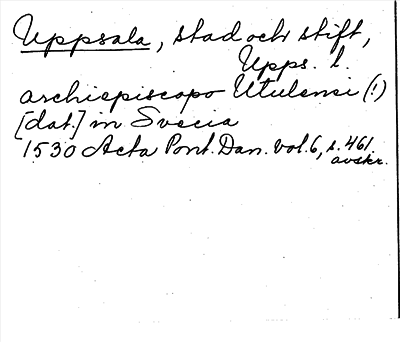 Uppsala, stad och stift,
Upps. l.
archiepiscopo Utulensi (!)
[dat.] in Svecia
1530 Acta Pont. Dan. vol. 6, s. 461.
avskr.